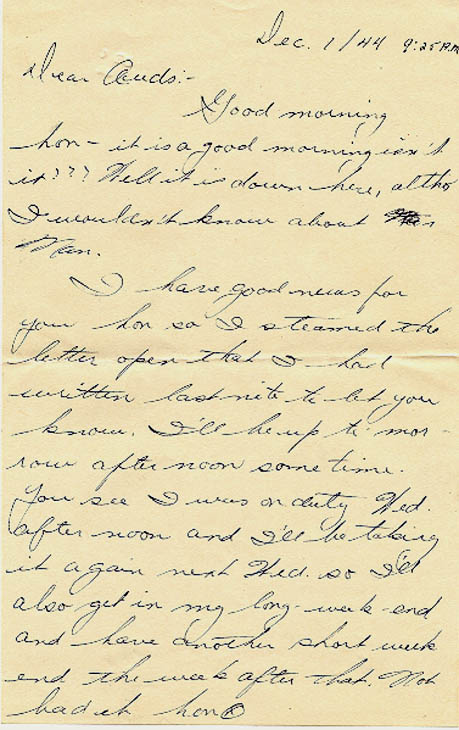 Dec. 1/44 9:25 A.M.
Dear Auds:-
Good morning
hon - it is a good morning isn't
it??? Well it is down here, altho
I wouldn't know about
Man.
I have good news for
you hon so I steamed the
letter open that I had
written last nite to let you
know. I'll be up to mor-
row afternoon some time.
You see I was on duty Wed.
afternoon and I'll be taking
it again next Wed. so I'll
also get in my long-week-end
and have another short week
end the week after that. Not
bad eh hon